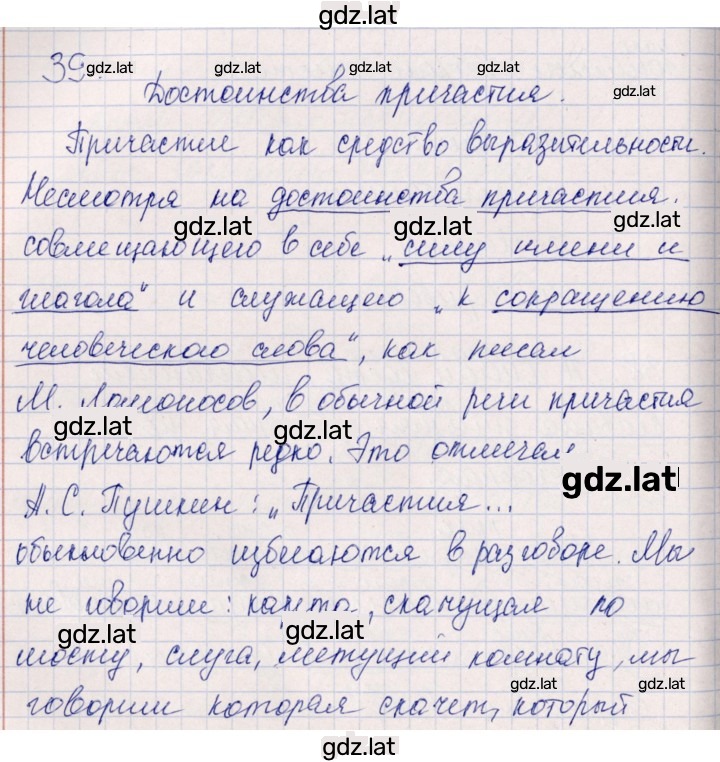 gdz.lat
39. gdz.lat gdz.lat gdz.lat
Достоинства причастия. gdz.lat
Причастие как средство выразительности.
Несмотря на достоинства причастия.
gdz.lat gdz.lat
совмещающего в себе „силу имени и
глагола“ и служащего „к сокращению
человеческого слова“, как писал
М. Ломоносов, в обычной речи причастия
gdz.lat gdz.lat
встречаются редко. Это отмечал
gdz.lat
А. С. Пушкин: „Причастия...
обыкновенно избегаются в разговоре. Мы
не говорим: карета, скачущая по
gdz.lat gdz.lat
мосту, слуга, метущий комнату, мы
gdz.lat gdz.lat
говорим которая скачет, который
gdz.lat